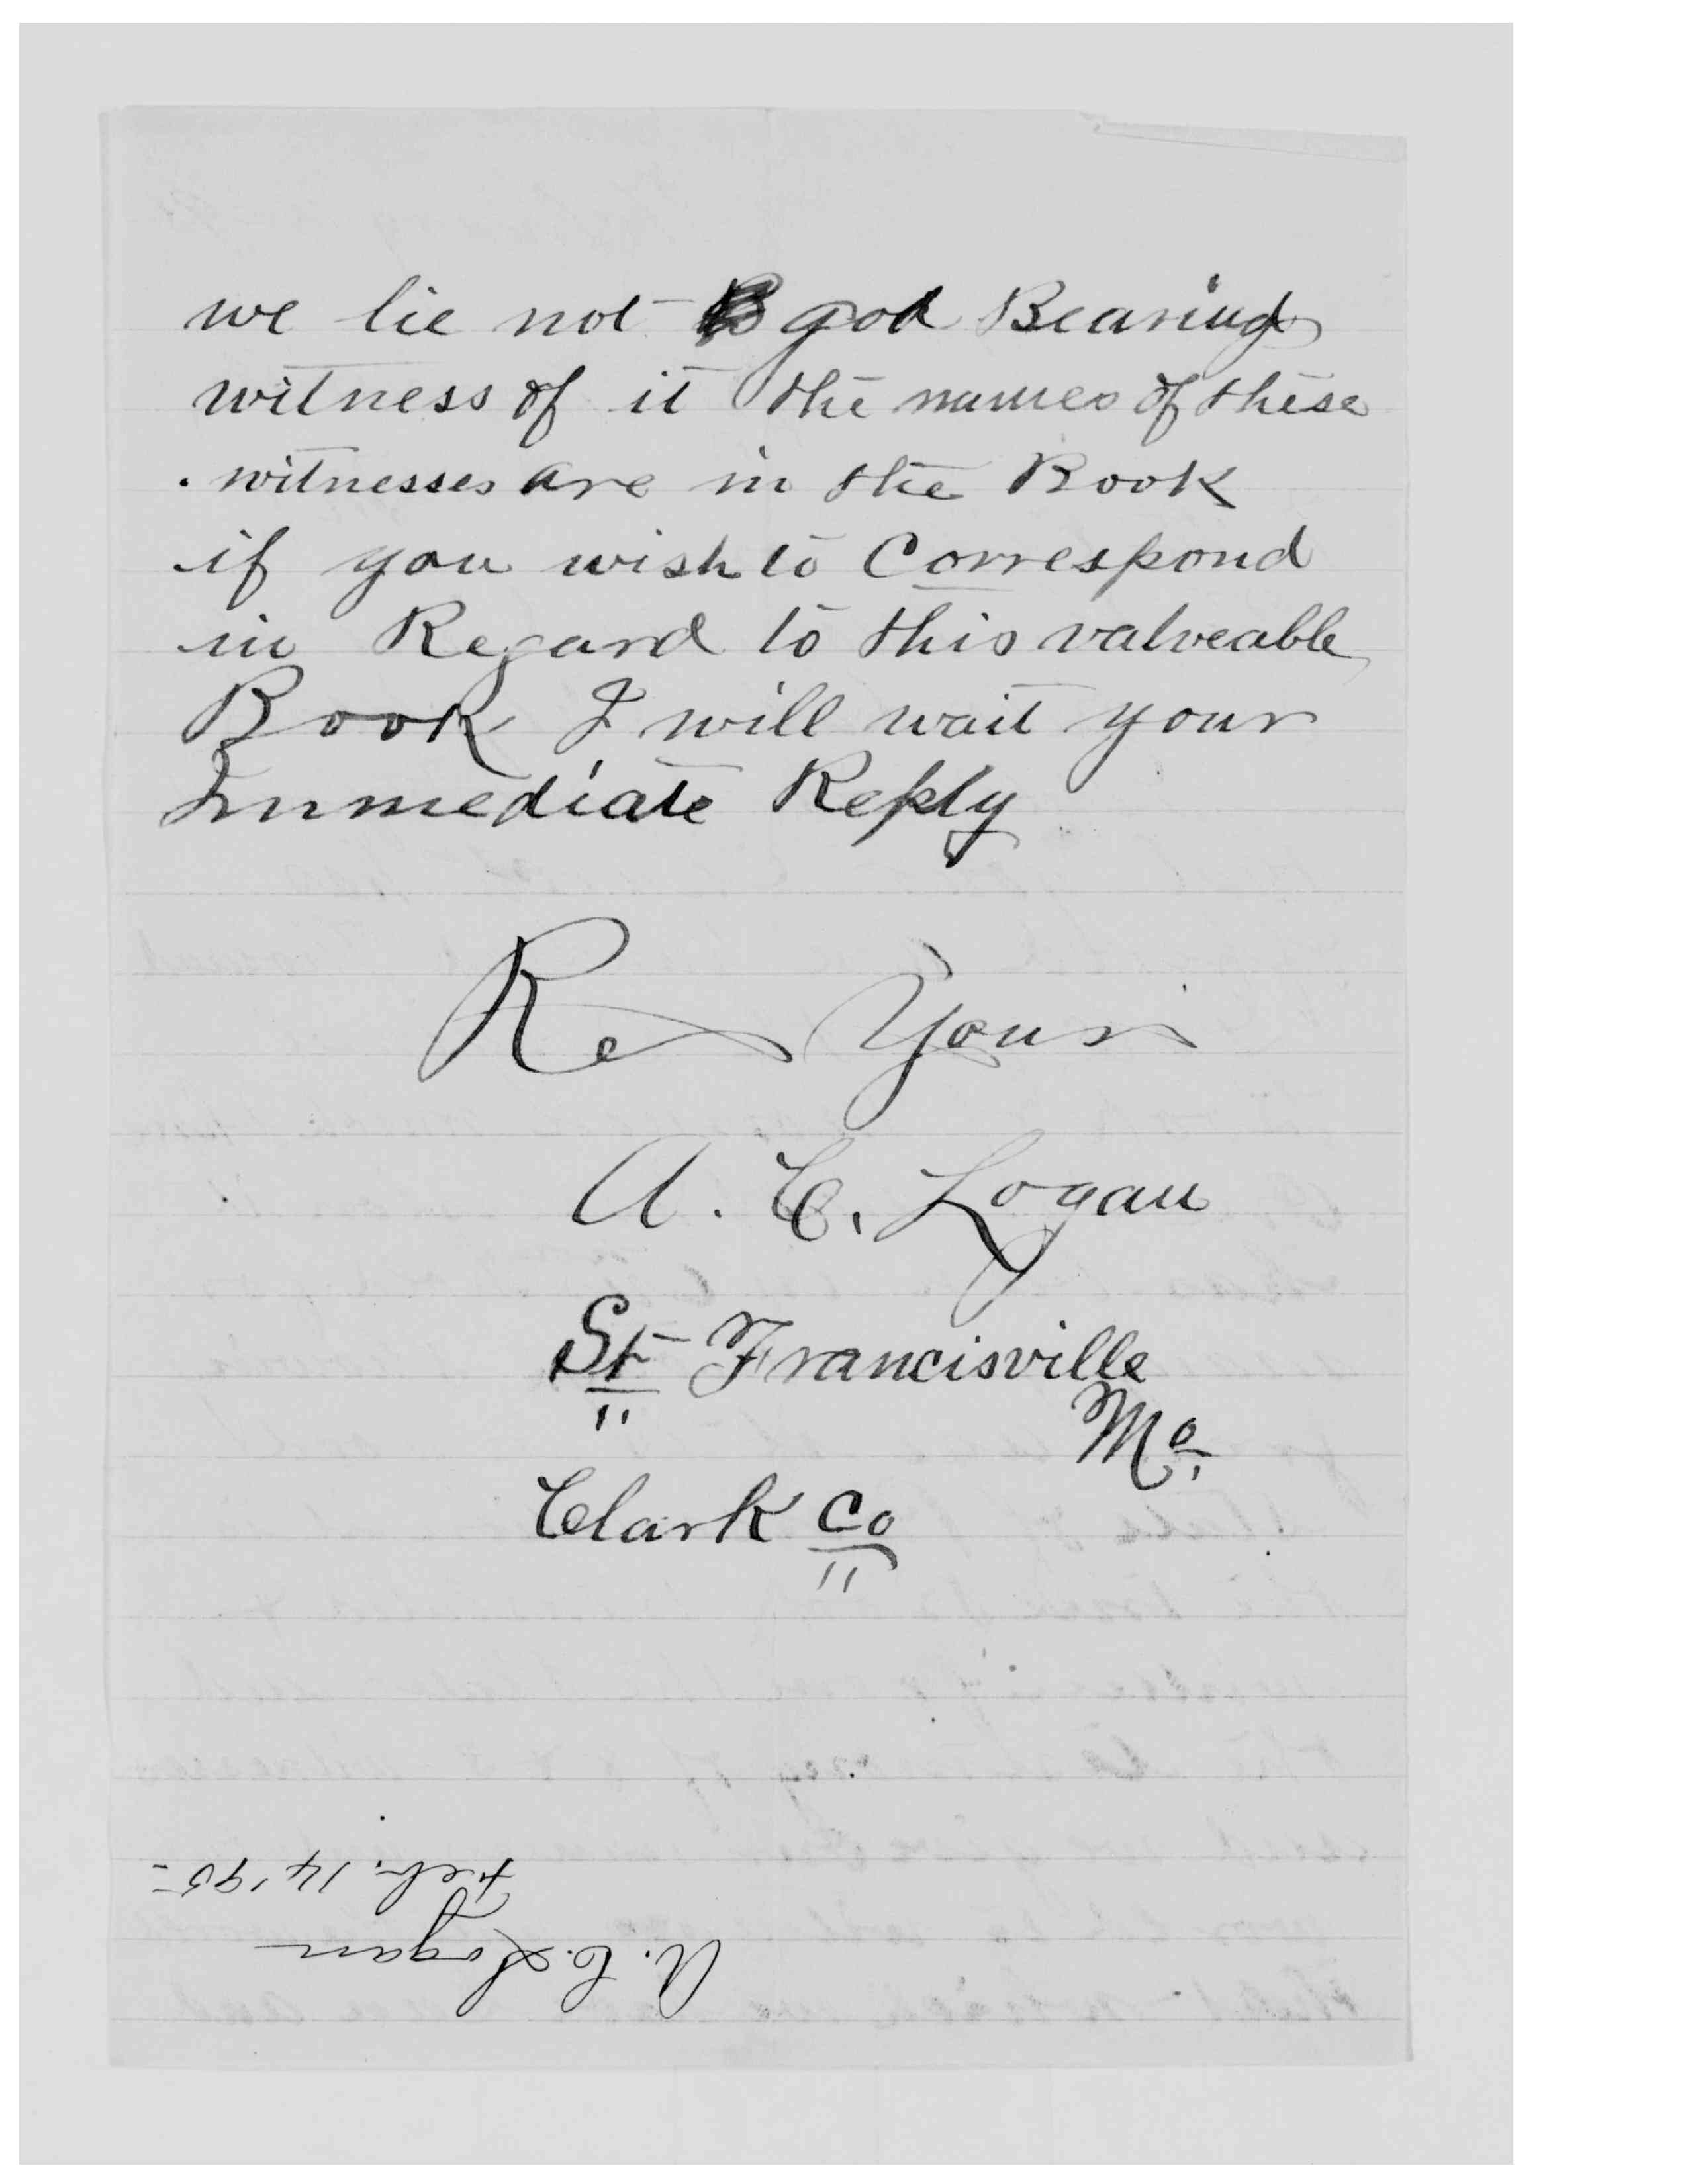 we lie not god Bearing
witness of it the names of these
witnesses are in the Book
if you wish to Correspond
in Regard to this valveable
Book I will wait your
Immediate Reply
Re Yours
A. C. Logan
St Francisville
Mo.
Clark Co
A. C. Logan
Feb. 14 '95